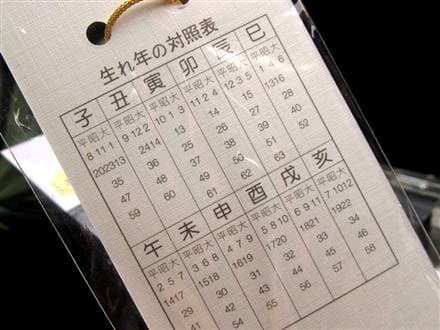 生れ年の対照表
子 丑 寅 卯 辰 巳
平昭大 平昭大 平昭大 平昭大 平昭大 平昭大
8 11 1 9 12 2 10 1 3 11 2 4 12 3 5 1 4 6
202313 2414 13 14 15 1316
35 36 25 26 27 28
47 48 37 38 39 40
59 60 49 50 51 52
61 62 63
午 未 申 酉 戌 亥
平昭大 平昭大 平昭大 平昭大 平昭大 平昭大
2 5 7 3 6 8 4 7 9 5 8 10 6 9 11 7 1012
1417 1518 1619 1720 1821 1922
29 30 31 32 33 34
41 42 43 44 45 46
54 55 56 57 58